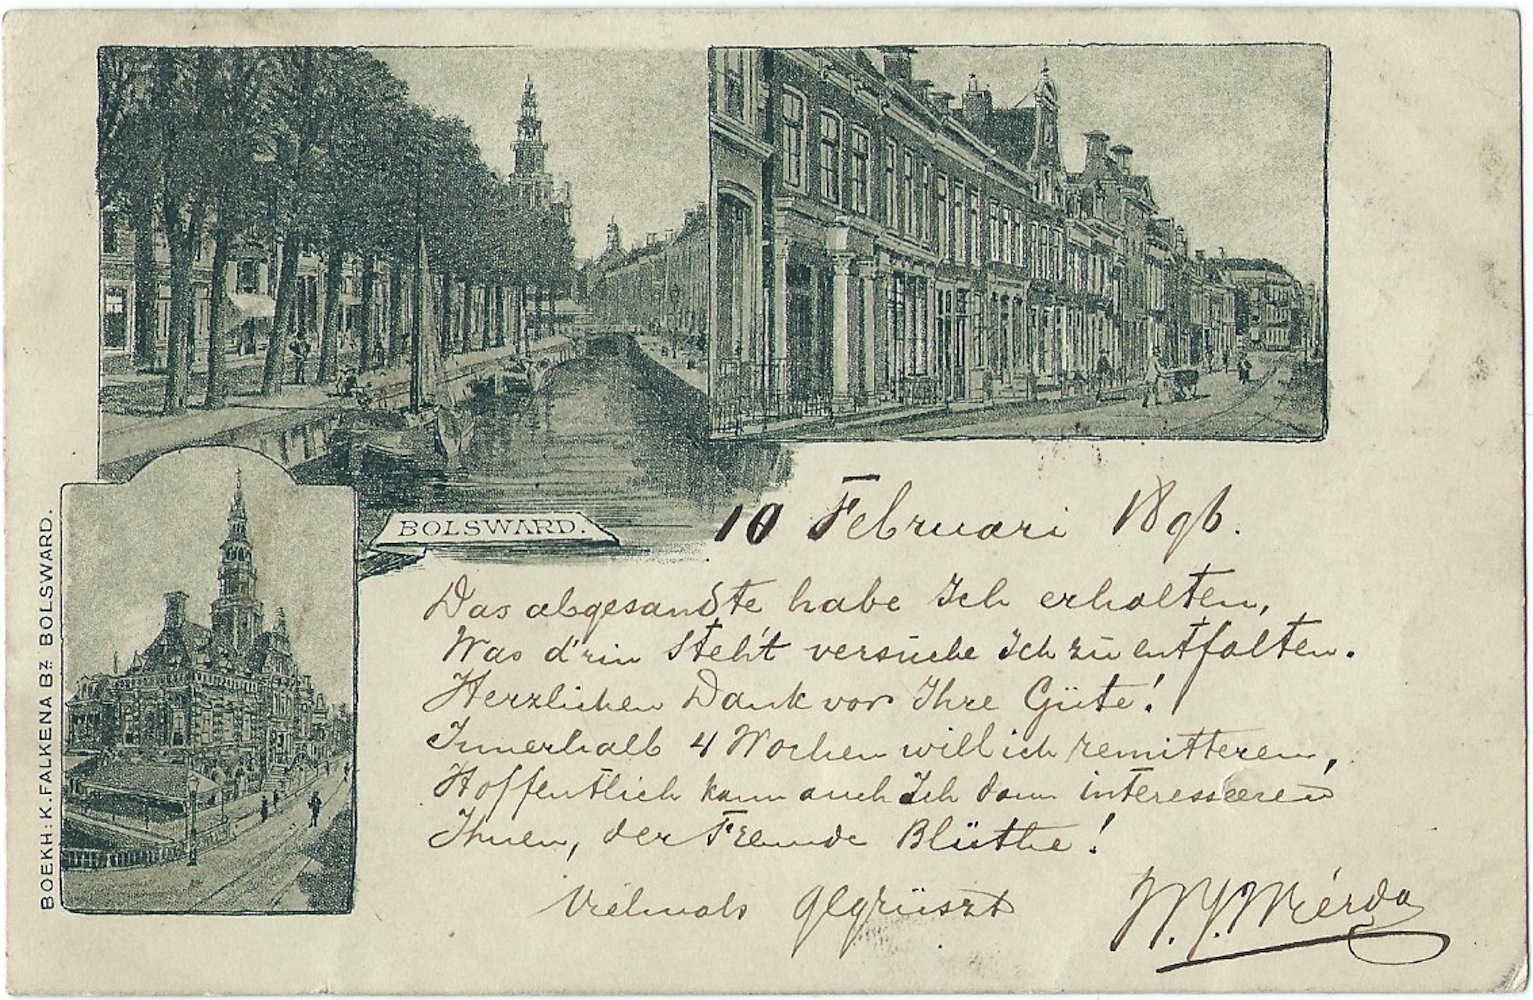 BOLSWARD.
BOEKH: K. FALKENA Bz. BOLSWARD.
10 Februari 1896.
Das abgesandte habe Ich erhalten,
Was d'rin steh't versuche Ich zu entfalten.
Herzlichen Dank vor Ihre Güte!
Innerhalb 4 Wochen will ich remitteren,
Hoffentlich kann auch Ich dann interesseeren
Ihnen, der Freunde Blüthe!
Vielmals gegrüszt